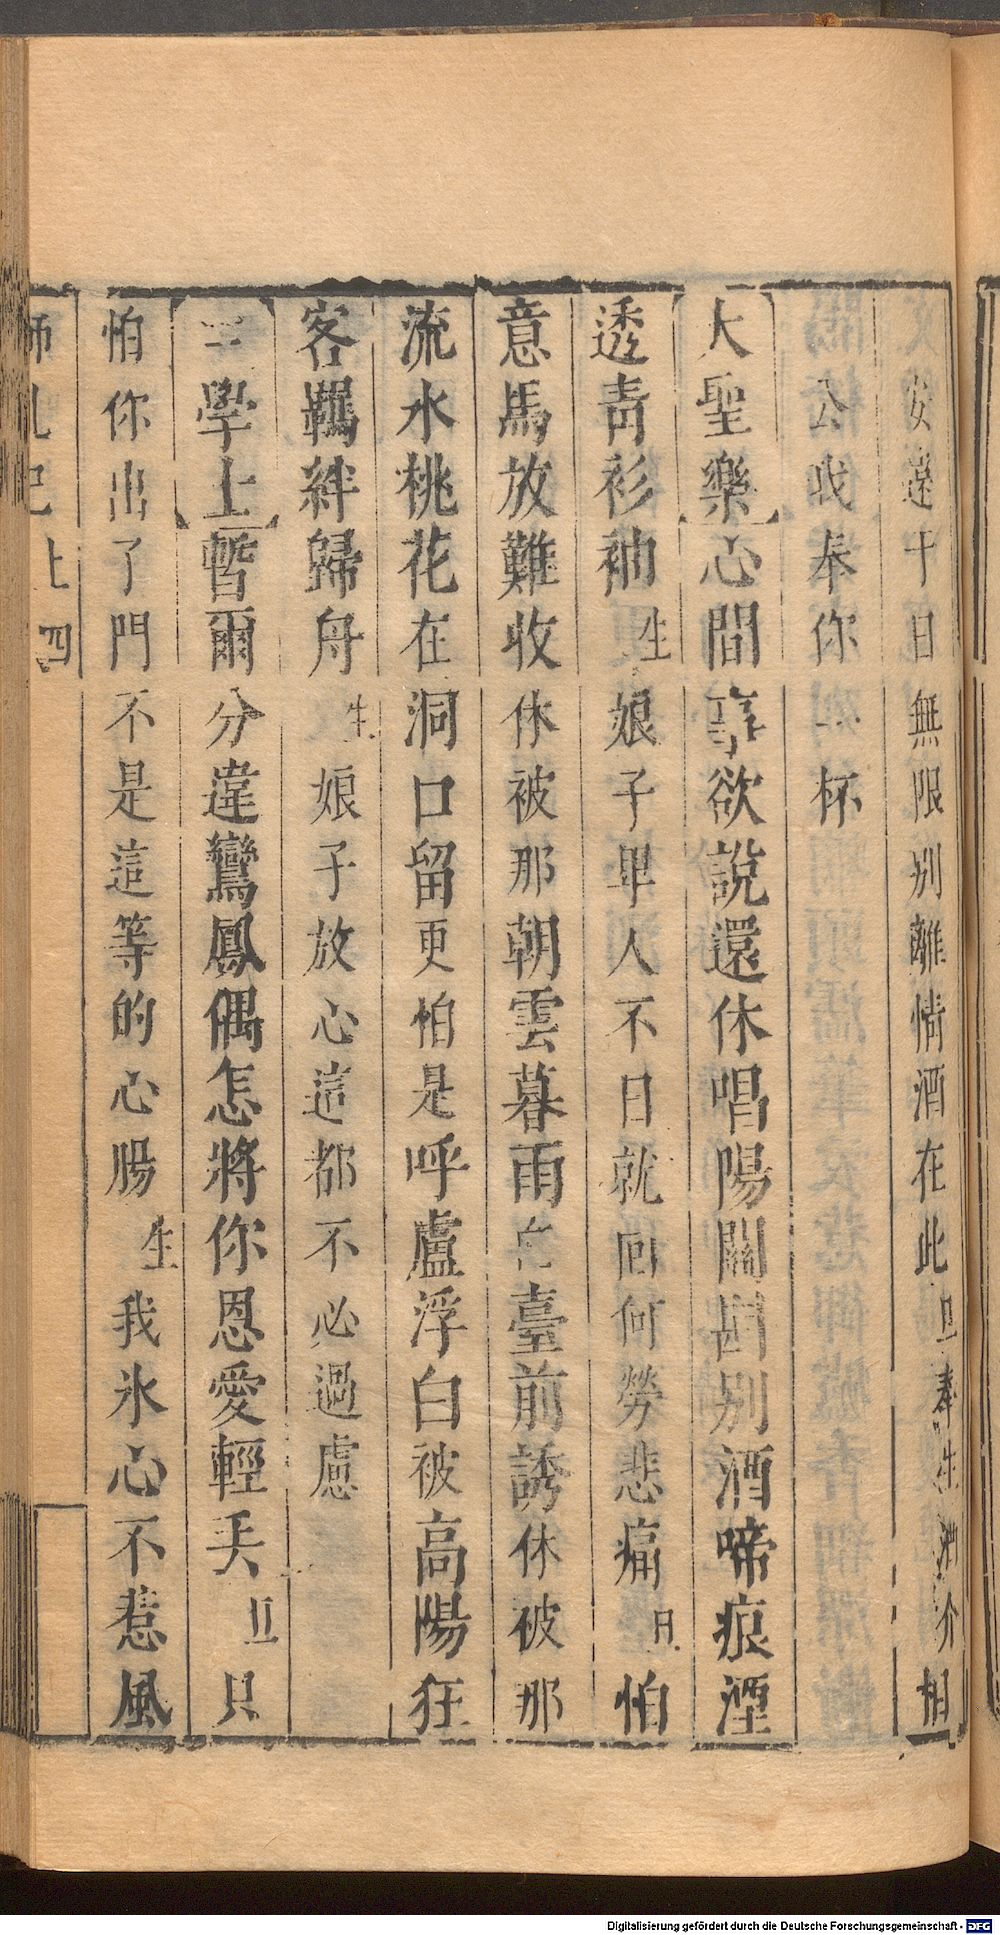 安違十日無限別離情酒在此旦奉生酒介相
公我奉你一杯
大聖樂心間事欲說還休唱陽關斟別酒啼痕溼
透青衫袖生娘子卑人不日就回何勞悲痛旦怕
意馬放難收休被那朝雲暮雨臺前誘休被那
流水桃花在洞口留更怕是呼盧浮白被高陽狂
客羈絆歸舟生娘子放心這都不必過慮
三學士暫爾分違鸞鳳偶怎將你恩愛輕丟旦只
怕你出了門不是這等的心腸生我氷心不惹風
獅吼記上四
Digitalisierung gefördert durch die Deutsche Forschungsgemeinschaft - DFG